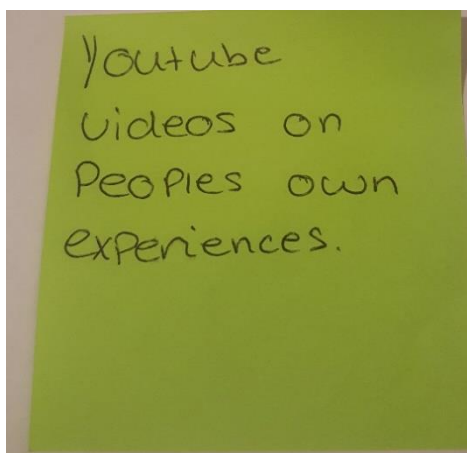 Youtube
videos on
Peoples own
experiences.